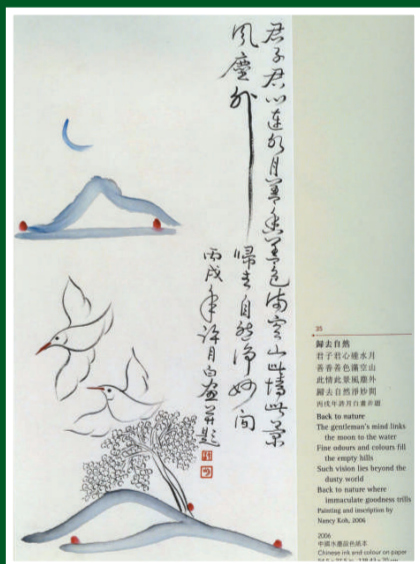 君子君心連水月善香善色滿空山此情此景
風塵外
歸去自然淨妙間
丙戌年許月白畫并題
35
歸去自然
君子君心連水月
善香善色滿空山
此情此景風塵外
歸去自然淨妙間
丙戌年許月白畫并題
Back to nature
The gentleman's mind links
the moon to the water
Fine odours and colours fill
the empty hills
Such vision lies beyond the
dusty world
Back to nature where
immaculate goodness trills
Painting and inscription by
Nancy Koh, 2006
2006
中國水墨設色紙本
Chinese ink and colour on paper